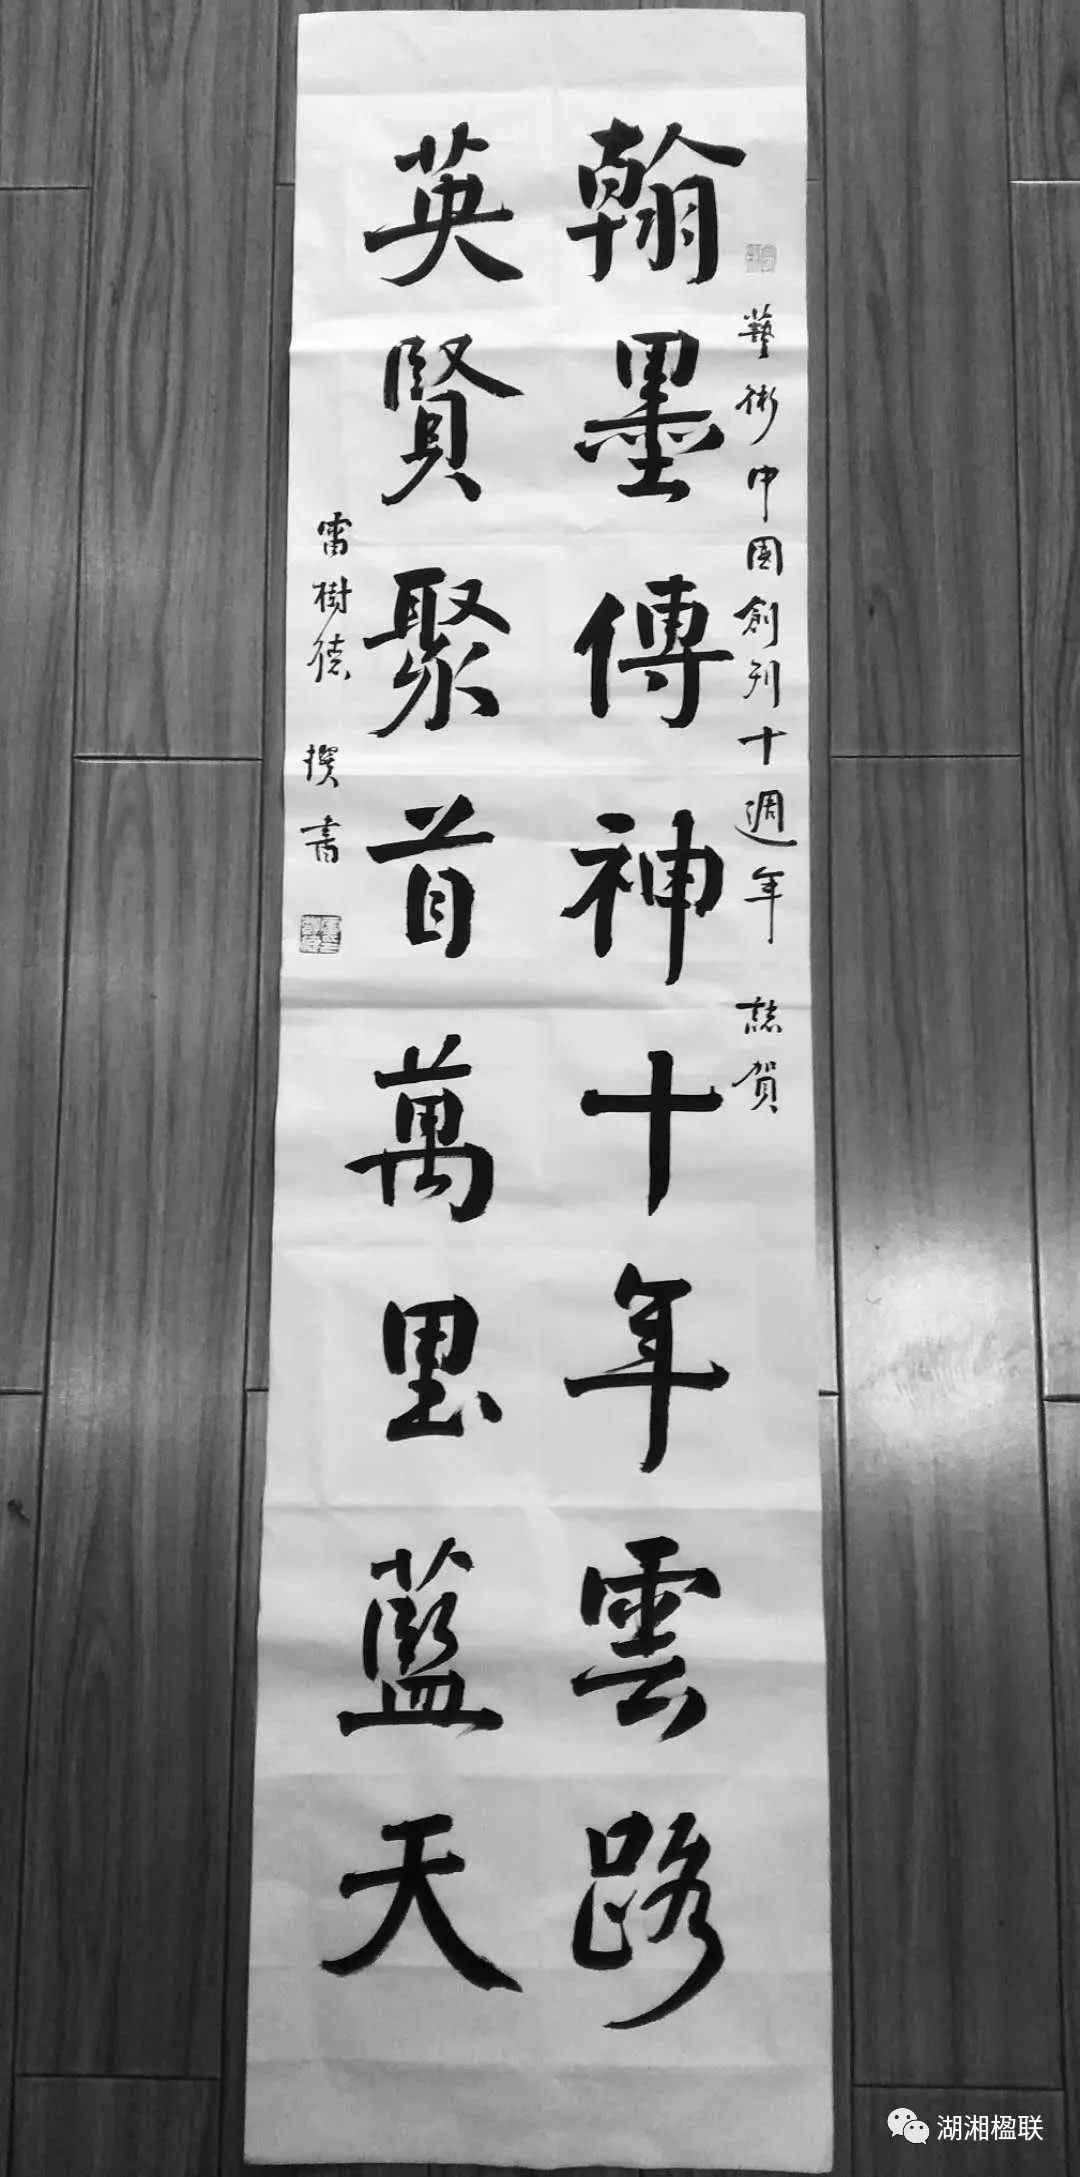 藝術中國創刊十週年 誌賀
翰墨傳神十年雲路
英賢聚首萬里藍天
雷樹德 撰書
湖湘楹联